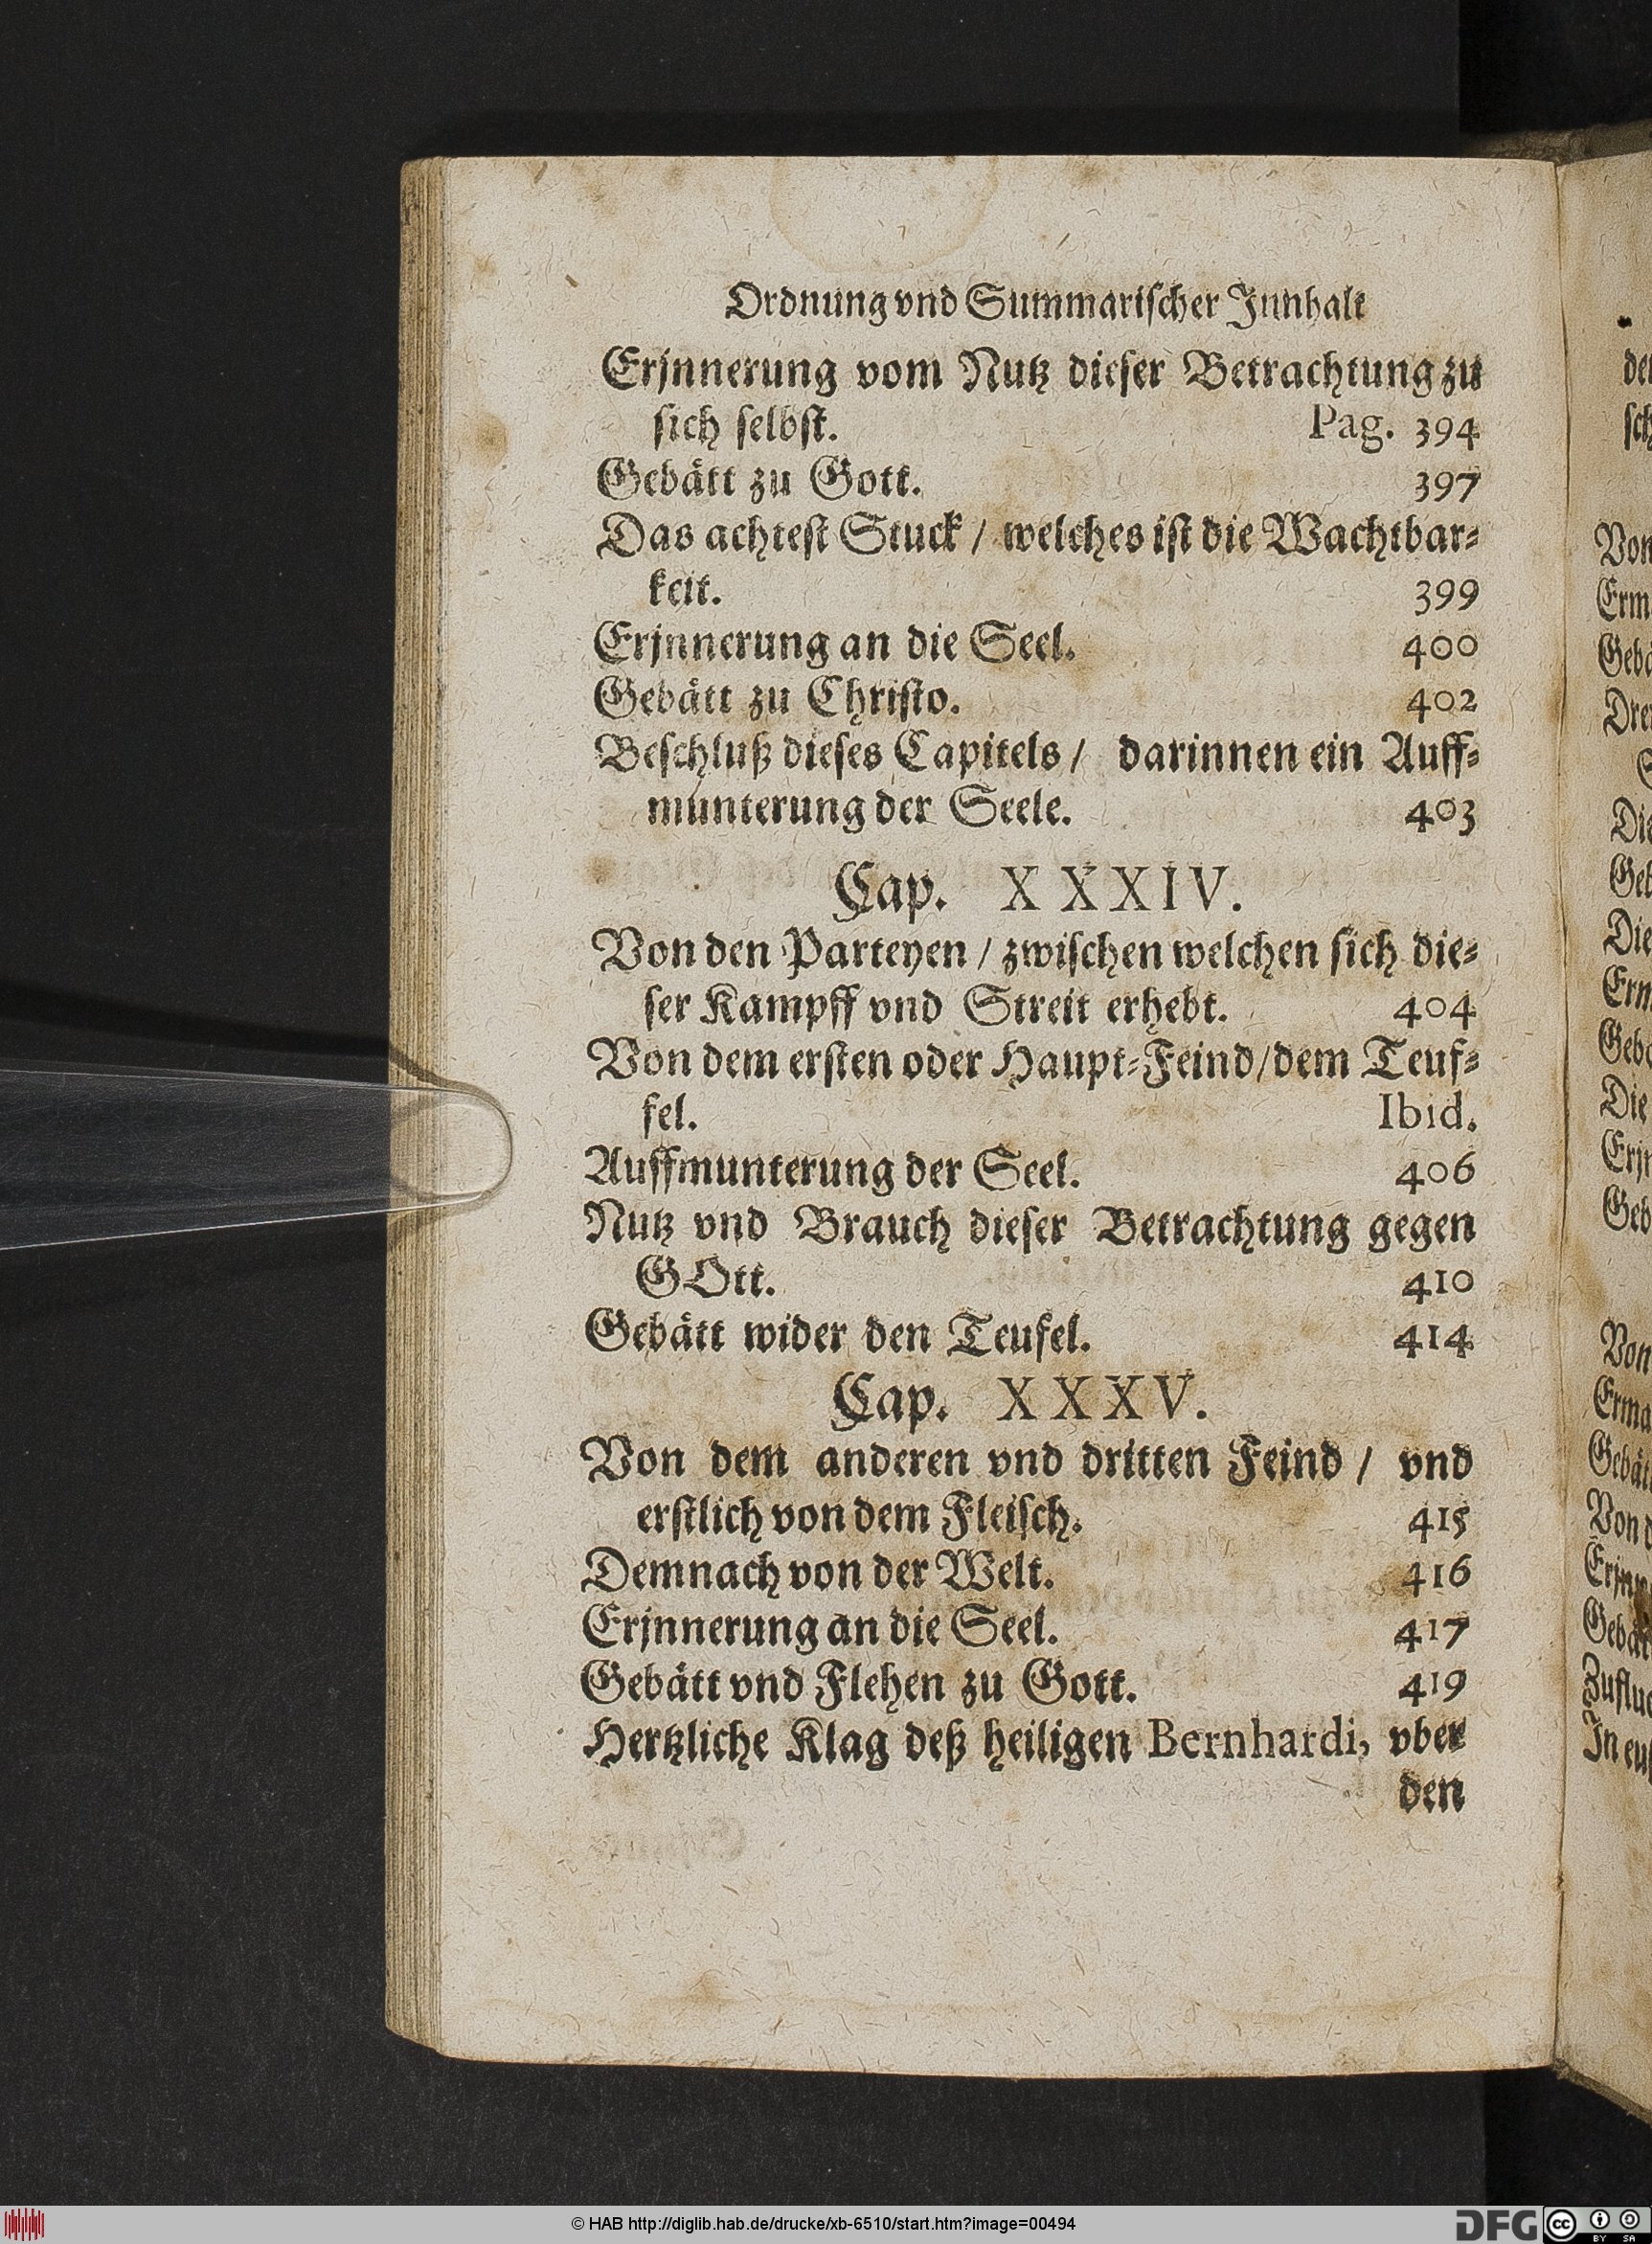 Ordnung vnd Summarischer Jnnhalt
Erjnnerung vom Nutz dieser Betrachtung zu
sich selbst. Pag. 394
Gebätt zu Gott. 397
Das achtest Stuck / welches ist die Wachtbar-
keit. 399
Erjnnerung an die Seel. 400
Gebätt zu Christo. 402
Beschluß dieses Capitels / darinnen ein Auff-
munterung der Seele. 403
Cap. XXXIV.
Von den Parteyen / zwischen welchen sich die-
ser Kampff vnd Streit erhebt. 404
Von dem ersten oder Haupt-Feind/dem Teuf-
fel. Ibid.
Auffmunterung der Seel. 406
Nutz vnd Brauch dieser Betrachtung gegen
GOtt. 410
Gebätt wider den Teufel. 414
Cap. XXXV.
Von dem anderen vnd dritten Feind / vnd
erstlich von dem Fleisch. 415
Demnach von der Welt. 416
Erjnnerung an die Seel. 417
Gebätt vnd Flehen zu Gott. 419
Hertzliche Klag deß heiligen Bernhardi, vber
den
Von
Die
Die
Die
Von
© HAB http://diglib.hab.de/drucke/xb-6510/start.htm?image=00494
DFG
cc
BY SA